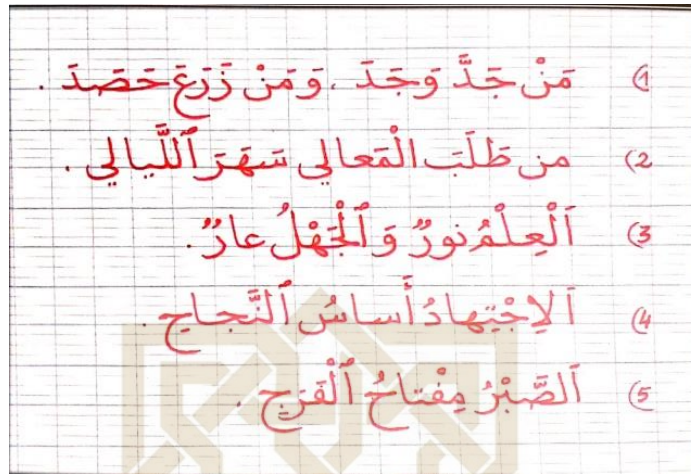 1) مَنْ جَدَّ وَجَدَ ، وَمَنْ زَرَعَ حَصَدَ .
2) من طَلَبَ الْمَعالي سَهَرَ ٱللَّيالي .
3) اَلْعِلْمُ نورٌ وَ ٱلْجَهْلُ عارٌ .
4) اَلاِجْتِهادُ أَساسُ ٱلنَّجاحِ .
5) اَلصَّبْرُ مِفْتاحُ ٱلْفَرَجِ .